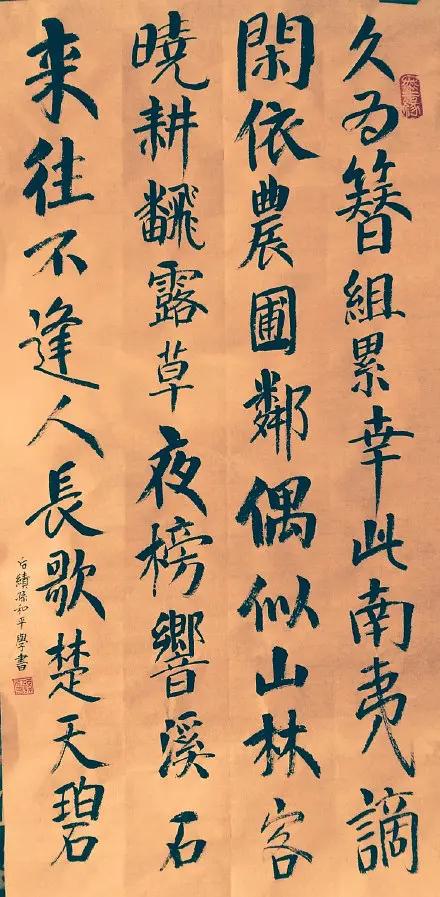 久为簪組累幸此南夷謫
閑依農圃鄰偶似山林客
曉耕飜露草夜榜響溪石
来往不逢人長歌楚天碧
孫和平學書